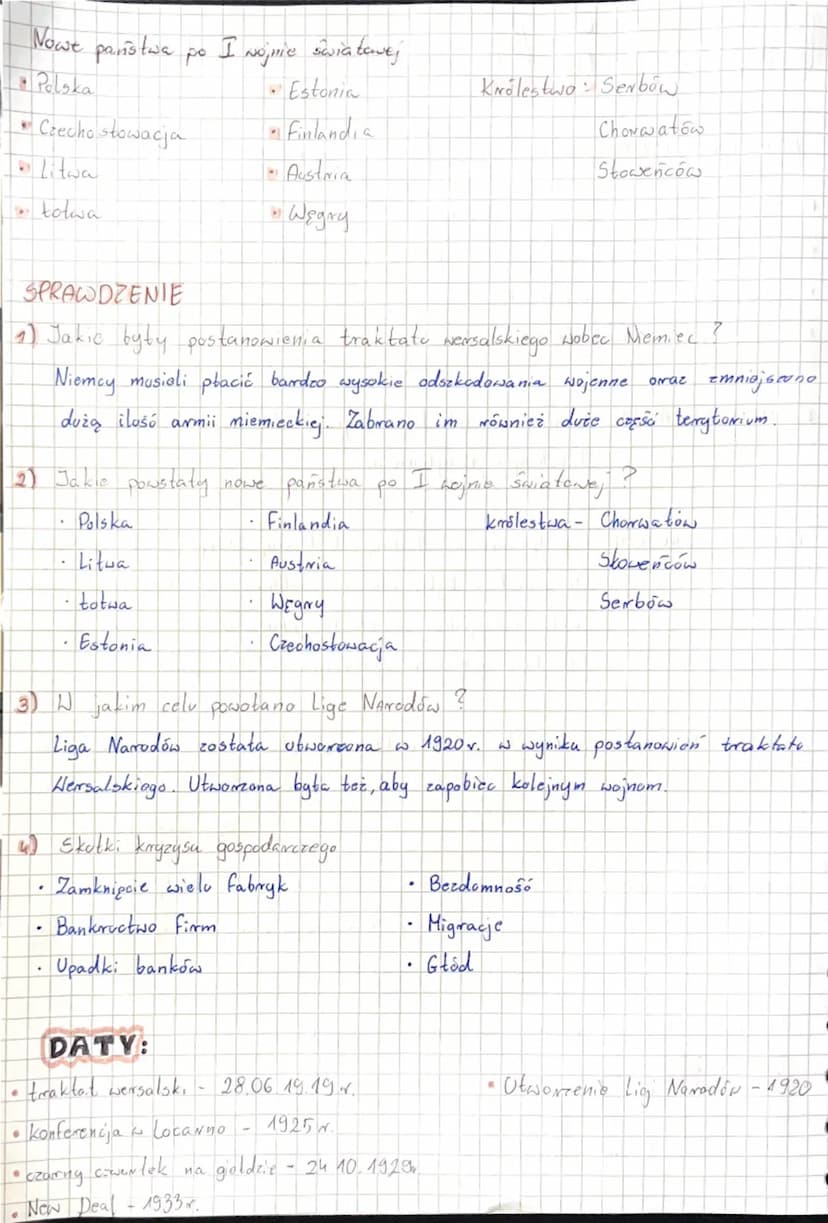 Nowe państwa po I wojnie światowej
• Polska • Estonia Królestwo: Serbów
• Czechosłowacja • Finlandia Chorwatów
• Litwa • Austria Słoweńców
• Łotwa • Węgry
SPRAWDZENIE
1) Jakie były postanowienia traktatu wersalskiego wobec Niemiec?
Niemcy musieli płacić bardzo wysokie odszkodowania wojenne oraz zmniejszono
dużą ilość armii niemieckiej. Zabrano im również duże część terytorium.
2) Jakie powstały nowe państwa po I wojnie światowej?
• Polska • Finlandia królestwa - Chorwatów
• Litwa • Austria Słoweńców
• Łotwa • Węgry Serbów
• Estonia • Czechosłowacja
3) W jakim celu powołano Lige Narodów?
Liga Narodów została utworzona w 1920r. w wyniku postanowień traktatu
Wersalskiego. Utworzona była też, aby zapobiec kolejnym wojnom.
4) Skutki kryzysu gospodarczego
• Zamknięcie wielu fabryk • Bezdomność
• Bankructwo firm • Migracje
• Upadki banków • Głód
DATY:
• traktat wersalski - 28.06.19.19r. • Utworzenie Ligi Narodów - 1920
• konferencja w Locarno - 1925r.
• czarny czwartek na giełdzie - 24.10.1929r.
• New Deal - 1933r.